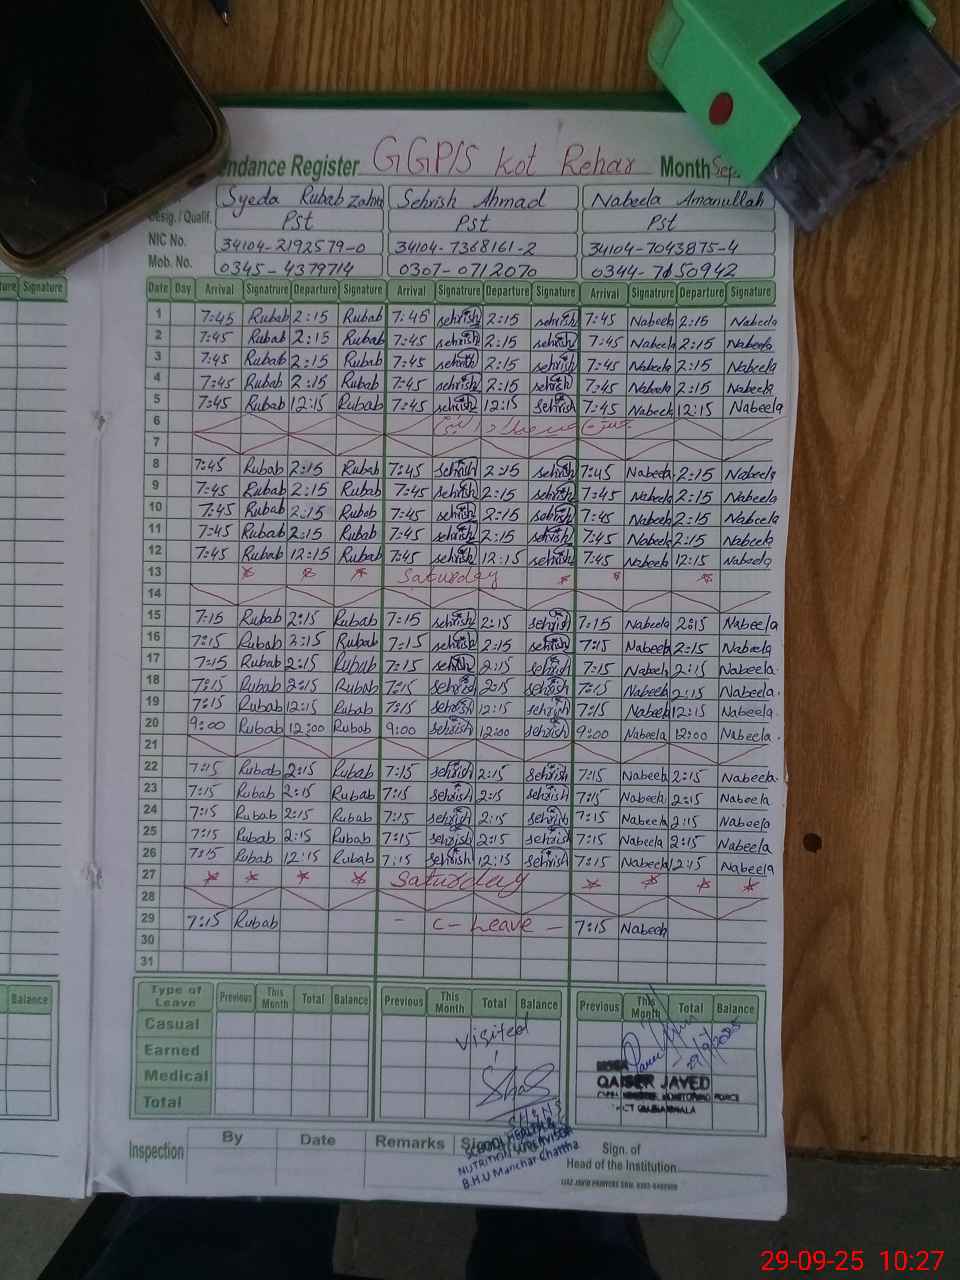 ndance Register GGP/S Kot Rehar Month Sep
Syeda Rubab Zahra Sehrish Ahmad Nabeela Amanullah
Desig. / Qualif. Pst Pst Pst
NIC No. 34104-2192579-0 34104-7368161-2 34104-7043875-4
Mob. No. 0345-4379714 0307-0712070
ture Signature
Date Day Arrival Signatrure Departure Signature Arrival Signatrure Departure Signature Arrival Signatrure Departure Signature
1 7:45 Rubab 2:15 Rubab 7:45 sehrish 2:15 sehrish 7:45 Nabeela 2:15 Nabeela
2 7:45 Rubab 2:15 Rubab 7:45 sehrish 2:15 sehrish 7:45 Nabeela 2:15 Nabeela
3 7:45 Rubab 2:15 Rubab 7:45 sehrish 2:15 sehrish 7:45 Nabeela 2:15 Nabeela
4 7:45 Rubab 2:15 Rubab 7:45 sehrish 2:15 sehrish 7:45 Nabeela 2:15 Nabeela
5 7:45 Rubab 12:15 Rubab 7:45 sehrish 12:15 sehrish 7:45 Nabeela 12:15 Nabeela
6
7
8 7:45 Rubab 2:15 Rubab 7:45 sehrish 2:15 sehrish 7:45 Nabeela 2:15 Nabeela
9 7:45 Rubab 2:15 Rubab 7:45 sehrish 2:15 sehrish 7:45 Nabeela 2:15 Nabeela
10 7:45 Rubab 2:15 Rubab 7:45 sehrish 2:15 sehrish 7:45 Nabeela 2:15 Nabeela
11 7:45 Rubab 2:15 Rubab 7:45 sehrish 2:15 sehrish 7:45 Nabeela 2:15 Nabeela
12 7:45 Rubab 12:15 Rubab 7:45 sehrish 12:15 sehrish 7:45 Nabeela 12:15 Nabeela
13 Saturday
14
15 7:15 Rubab 2:15 Rubab 7:15 sehrish 2:15 sehrish 7:15 Nabeela 2:15 Nabeela
16 7:15 Rubab 2:15 Rubab 7:15 sehrish 2:15 sehrish 7:15 Nabeela 2:15 Nabeela
17 7:15 Rubab 2:15 Rubab 7:15 sehrish 2:15 sehrish 7:15 Nabeela 2:15 Nabeela.
18 7:15 Rubab 2:15 Rubab 7:15 sehrish 2:15 sehrish 7:15 Nabeela 2:15 Nabeela.
19 7:15 Rubab 12:15 Rubab 7:15 sehrish 12:15 sehrish 7:15 Nabeela 12:15 Nabeela.
20 9:00 Rubab 12:00 Rubab 9:00 sehrish 12:00 sehrish 9:00 Nabeela 12:00 Nabeela.
21
22 7:15 Rubab 2:15 Rubab 7:15 sehrish 2:15 sehrish 7:15 Nabeela 2:15 Nabeela.
23 7:15 Rubab 2:15 Rubab 7:15 sehrish 2:15 sehrish 7:15 Nabeela 2:15 Nabeela
24 7:15 Rubab 2:15 Rubab 7:15 sehrish 2:15 sehrish 7:15 Nabeela 2:15 Nabeela
25 7:15 Rubab 2:15 Rubab 7:15 sehrish 2:15 sehrish 7:15 Nabeela 2:15 Nabeela
26 7:15 Rubab 12:15 Rubab 7:15 sehrish 12:15 sehrish 7:15 Nabeela 12:15 Nabeela
27 Saturday
28
29 7:15 Rubab - C-Leave - 7:15 Nabeela
30
31
Balance
Type of Leave Previous This Month Total Balance Previous This Month Total Balance Previous This Month Total Balance
Casual
Earned
Medical
Total
Visited
29/9/2025
QAISER JAVED
SH&NS
SCHOOL HEALTH &
NUTRITION SUPERVISOR
B.H.U Manchar Chattha
Inspection By Date Remarks
Sign. of
Head of the Institution
29-09-25 10:27